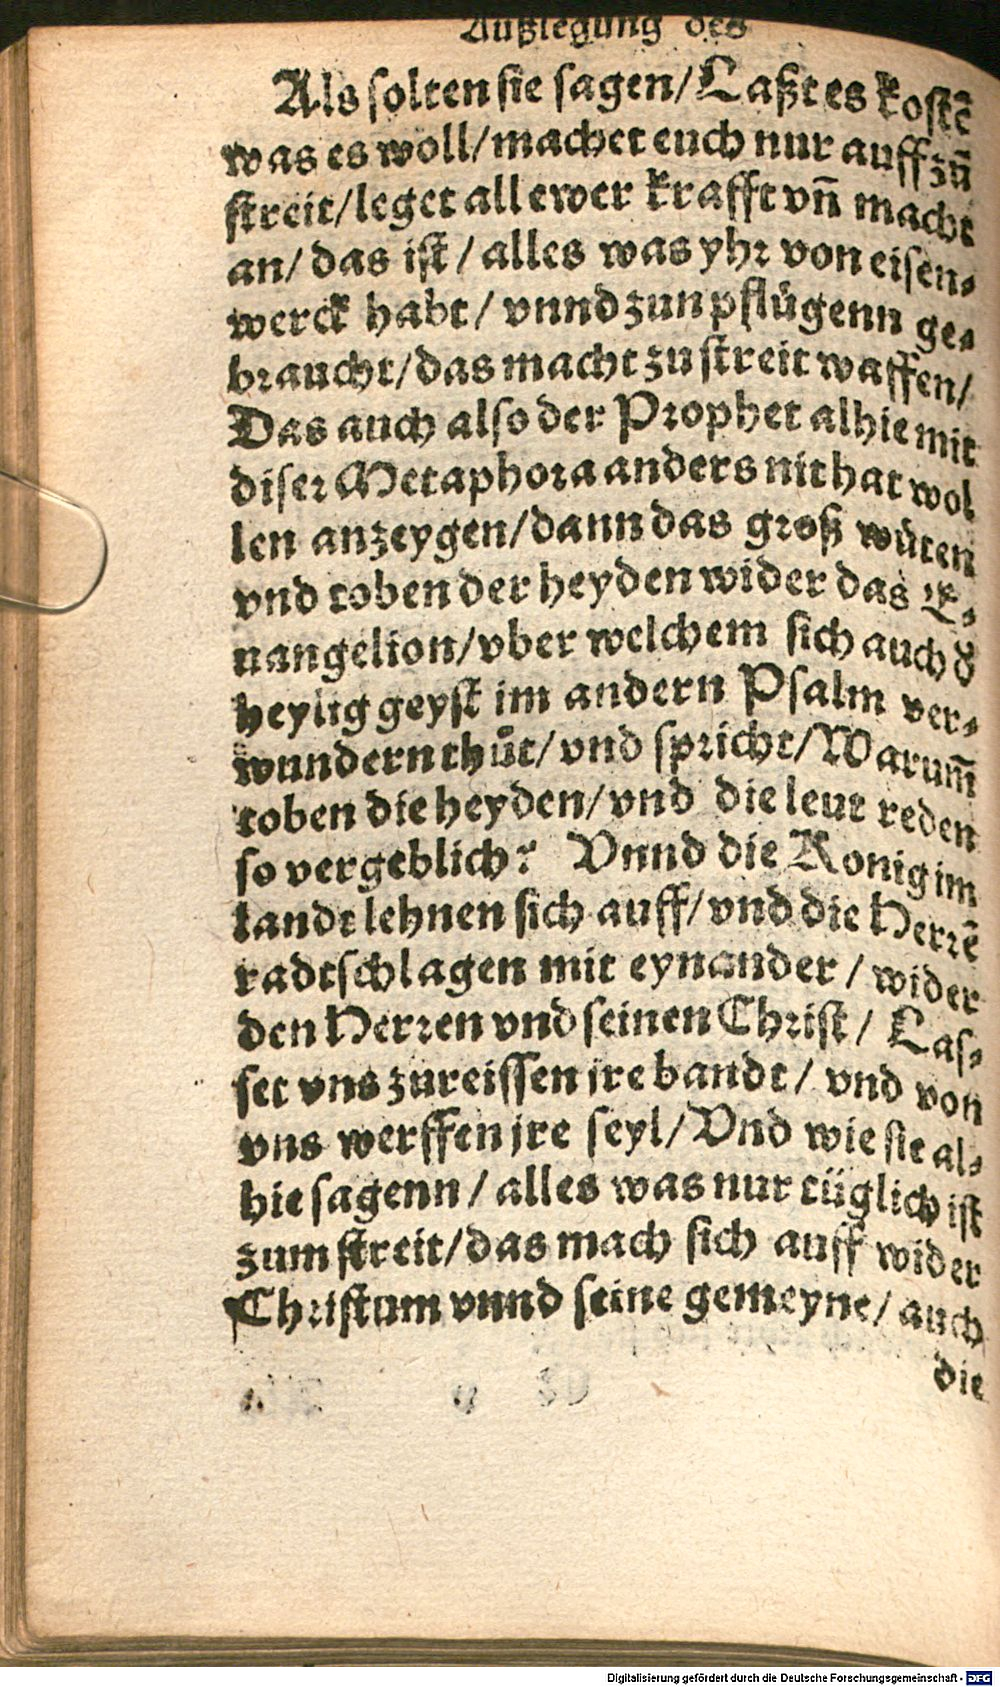 Außlegung des
Als solten sie sagen/Laßt es kostẽ
was es woll/machet euch nur auff zů
streit/leget all ewer krafft vñ macht
an/das ist/alles was yhr von eisen⸗
werck habt/vnnd zun pflügenn ge⸗
braucht/das macht zu streit waffen/
Das auch also der Prophet alhie mit
diser Metaphora anders nit hat wol
len anzeygen/dann das groß wüten
vnd toben der heyden wider das E⸗
uangelion/vber welchem sich auch d̕
heylig geyst im andern Psalm ver⸗
wundern thůt/vnd spricht/Warum̃
toben die heyden/vnd die leut reden
so vergeblich? Vnnd die Konig im
landt lehnen sich auff/vnd die Herrẽ
radtschlagen mit eynander/wider
den Herren vnd seinen Christ/Las⸗
set vns zureissen jre bandt/vnd von
vns werffen jre seyl/Vnd wie sie al⸗
hie sagenn/alles was nur tüglich ist
zum streit/das mach sich auff wider
Christum vnnd seine gemeyne/auch
die
Digitalisierung gefördert durch die Deutsche Forschungsgemeinschaft - DFG